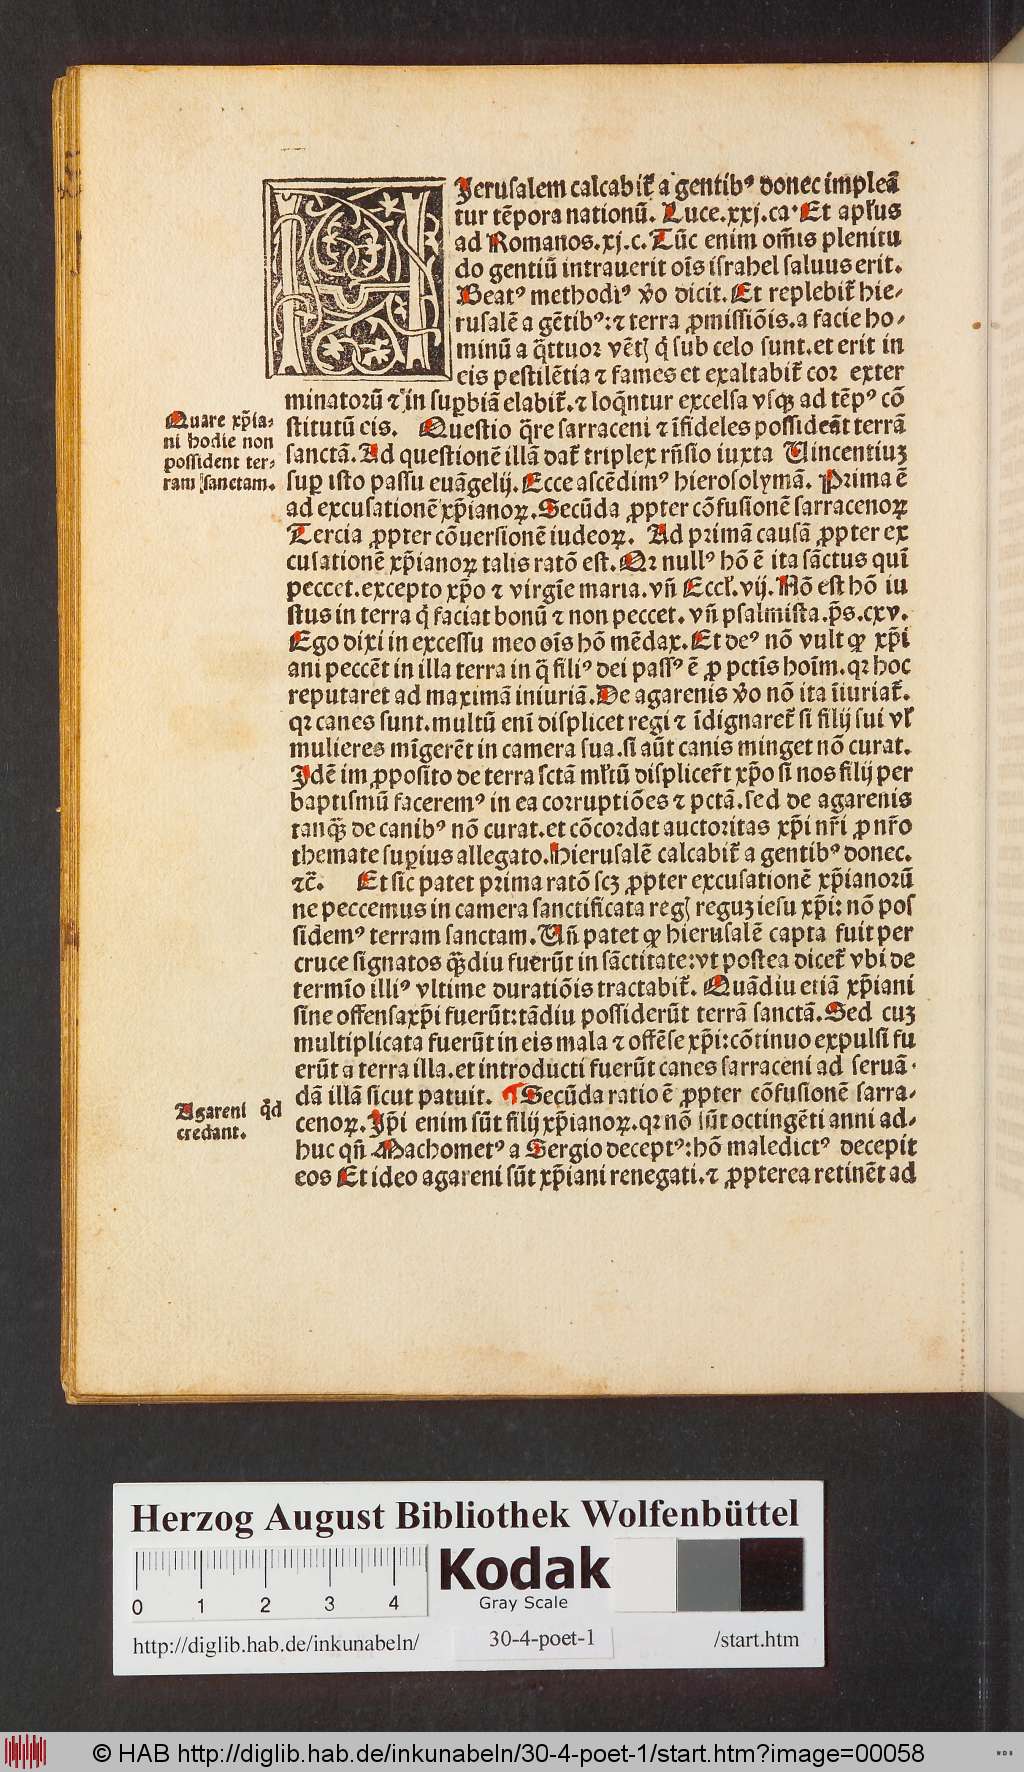 H
Jerusalem calcabit᷑ a gentibꝰ donec impleā
tur tēpora nationū. Luce.xxj.ca. Et apl'us
ad Romanos.xj.c. Tūc enim om̄is plenitu
do gentiū intrauerit ois̄ israhel saluus erit.
Beatꝰ methodiꝰ v̄o dicit. Et replebit᷑ hie-
rusalē a gētibꝰ: ⁊ terra ꝓmissiōis. a facie ho-
minū a q̄ttuor vētꝭ q̄ sub celo sunt. et erit in
eis pestilētia ⁊ fames et exaltabit᷑ cor exter
minatorū ⁊ in suꝑbiā elabit᷑. ⁊ loq̄ntur excelsa vsqꝫ ad tēpꝰ cō
stitutū eis. Questio q̄re sarraceni ⁊ īfideles possideāt terrā
sanctā. Ad questionē illā dat᷑ triplex rn̄sio iuxta Vincentiuꝫ
suꝑ isto passu euāgelij. Ecce ascēdimꝰ hierosolymā. Prima ē
ad excusationē xp̄ianoꝝ. Secūda ꝓpter cōfusionē sarracenoꝝ
Tercia ꝓpter cōuersionē iudeoꝝ. Ad primā causā ꝓpter ex
cusationē xp̄ianoꝝ talis ratō est. Qꝛ nullꝰ hō ē ita sāctus quī
peccet. excepto xp̄o ⁊ virgīe maria. vn̄ Eccl'. vij. Nō est hō iu
stus in terra q̄ faciat bonū ⁊ non peccet. vn̄ psalmista. ps̄. cxv.
Ego dixi in excessu meo ois̄ hō mēdax. Et deꝰ nō vult ꝙ xp̄i
ani peccēt in illa terra in q̄ filiꝰ dei passꝰ ē ꝓ pctīs hoīm. qꝛ hoc
reputaret ad maximā iniuriā. De agarenis v̄o nō ita īiuriat᷑.
qꝛ canes sunt. multū enī displicet regi ⁊ īdignaret᷑ si filij sui vl'
mulieres mīgerēt in camera sua. si aūt canis minget nō curat.
Jdē im ꝓposito de terra sctā ml'tū displicer̄t xp̄o si nos filij per
baptismū faceremꝰ in ea corruptiōes ⁊ pctā. sed de agarenis
tanqꝫ̄ de canibꝰ nō curat. et cōcordat auctoritas xp̄i nr̄i ꝓ nr̄o
themate suꝑius allegato. Hierusalē calcabit᷑ a gentibꝰ donec.
⁊c̄. Et sic patet prima ratō scꝫ ꝓpter excusationē xp̄ianorū
ne peccemus in camera sanctificata regꝭ reguꝫ iesu xp̄i: nō pos
sidemꝰ terram sanctam. Vn̄ patet ꝙ hierusalē capta fuit per
cruce signatos qꝫ̄diu fuerūt in sāctitate: vt postea dicet᷑ vbi de
termīo illiꝰ vltime duratiōis tractabit᷑. Quādiu etiā xp̄iani
sine offensa xp̄i fuerūt: tādiu possiderūt terrā sanctā. Sed cuꝫ
multiplicata fuerūt in eis mala ⁊ offēse xp̄i: cōtinuo expulsi fu
erūt a terra illa. et introducti fuerūt canes sarraceni ad seruā-
dā illā sicut patuit. ¶ Secūda ratio ē ꝓpter cōfusionē sarra-
cenoꝝ. Jp̄i enim sūt filij xp̄ianoꝝ. qꝛ nō sūt octingēti anni ad-
huc qn̄ Machometꝰ a Sergio deceptꝰ: hō maledictꝰ decepit
eos Et ideo agareni sūt xp̄iani renegati. ⁊ ꝓpterea retinēt ad
Quare xp̄ia-
ni hodie non
possident ter-
ram sanctam.
Agareni q̄d
credant.
Herzog August Bibliothek Wolfenbüttel
0 1 2 3 4
Kodak
Gray Scale
http://diglib.hab.de/inkunabeln/ 30-4-poet-1 /start.htm
© HAB http://diglib.hab.de/inkunabeln/30-4-poet-1/start.htm?image=00058